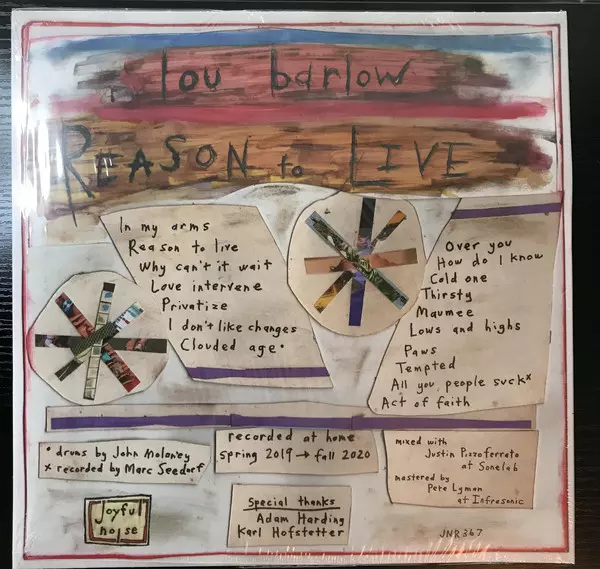 lou barlow
REASON to LIVE
In my arms
Reason to live
Why can't it wait
Love intervene
Privatize
I don't like changes
Clouded age*
Over you
How do I know
Cold one
Thirsty
Maumee
Lows and highs
Paws
Tempted
All you people suck x
Act of faith
* drums by John Moloney
x recorded by Marc Seedorf
recorded at home
spring 2019 → fall 2020
mixed with
Justin Pizzoferrato
at Sonelab
mastered by
Pete Lyman
at Infrasonic
joyful
noise
Special thanks
Adam Harding
Karl Hofstetter
JNR367